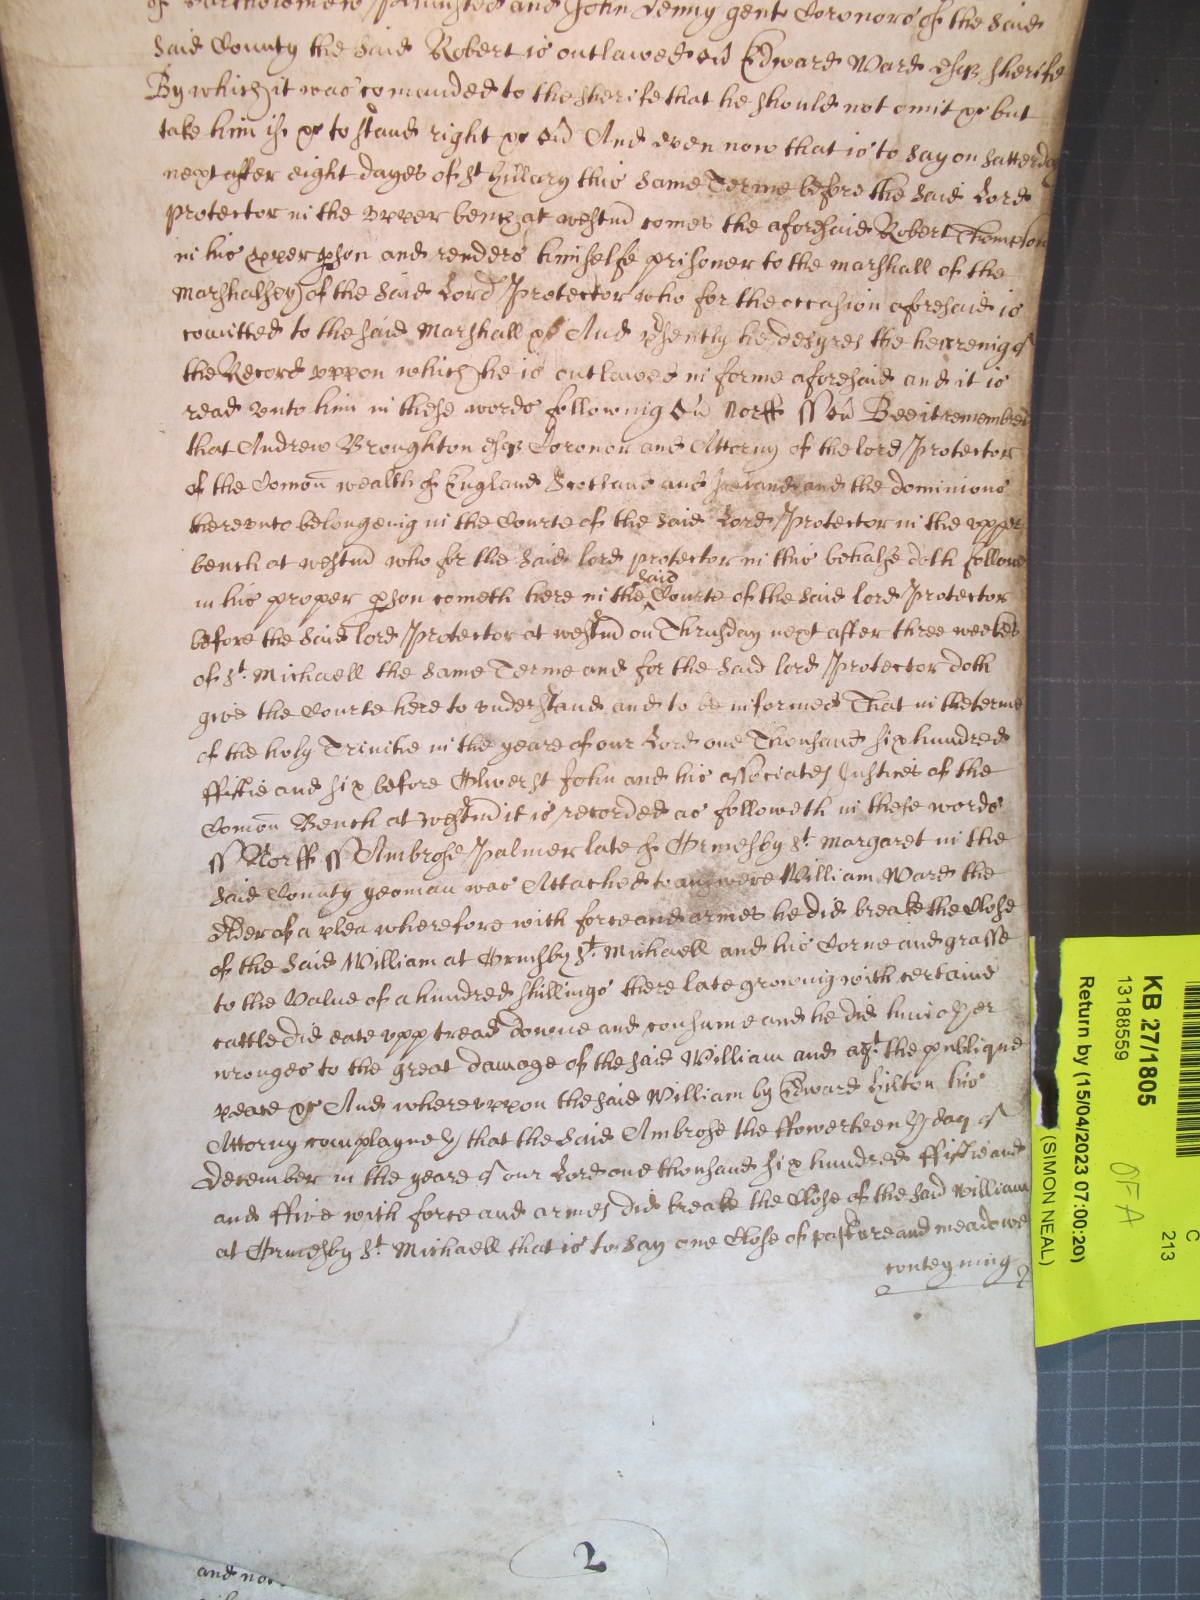 of Bartholomew Plumsted and John Denny gent Coronors of the Said
Said County the Said Robert is outlawed &c Edward Ward esq Sherife
By which it was comanded to the Sherife that he should not omit &c but
take him if &c to stand right &c &c And even now that is to say on Satterday
next after eight dayes of St Hillary this Same Terme before the Said Lord
Protector in the upper bench at westm comes the aforesaid Robert Thompson
in his proper pson and renders himselfe prisoner to the marshall of the
Marshalsey of the Said Lord Protector who for the occasion aforesaid is
comitted to the said Marshall &c And psently he desyres the hearenig of
the Record uppon which he is outlawed in forme aforesaid and it is
read unto him in these words followinig &c Norff ss &c Bee it remembred
that Andrew Broughton esq Coronor and Attorny of the lord Protector
of the Comon wealth of England Scotland and Ireland and the dominions
thereunto belongenig in the Courte of the Said Lord Protector in the upper
bench at westm who for the Said lord protector in this behalfe doth followe
in his proper pson cometh here in the said Courte of the Said lord Protector
before the Said lord Protector at westm on Thursday next after three weekes
of St. Michaell the Same Terme and for the Said lord Protector doth
give the Courte here to understand and to be informed That in the terme
of the holy Trinitie in the yeare of our Lord one Thousand six hundred
ffiftie and six before Olwer St John and his associates Justices of the
Comon Bench at westm it is recorded as followeth in these words
ss Norff ss Ambrose Palmer late of Ormesby St. Margaret in the
Said County yeoman was Attached to answere William Ward the
Elder of a plea wherefore with force and armes he did breake the Close
of the Said William at Ormsby St. Michaell and his Corne and grasse
to the Value of a hundred shillings there late growinig with certaine
cattle did eate upp tread downe and consume and he did him other
wronges to the great damage of the said William and agt the publique
peace &c And whereuppon the said William by Edward Hilton his
Attorny complayneth that the Said Ambrose the ffowerteenth day of
December in the yeare of our Lord one thousand six hundred ffiftie and
and ffive with force and armes did breake the Close of the Said William
at Ormesby St. Michaell that is to Say one Close of pasture and meadowe
conteyning
2
and not
KB 27/1805
13188559
Return by (15/04/2023 07:00:20)
(SIMON NEAL)
C
213
OFA